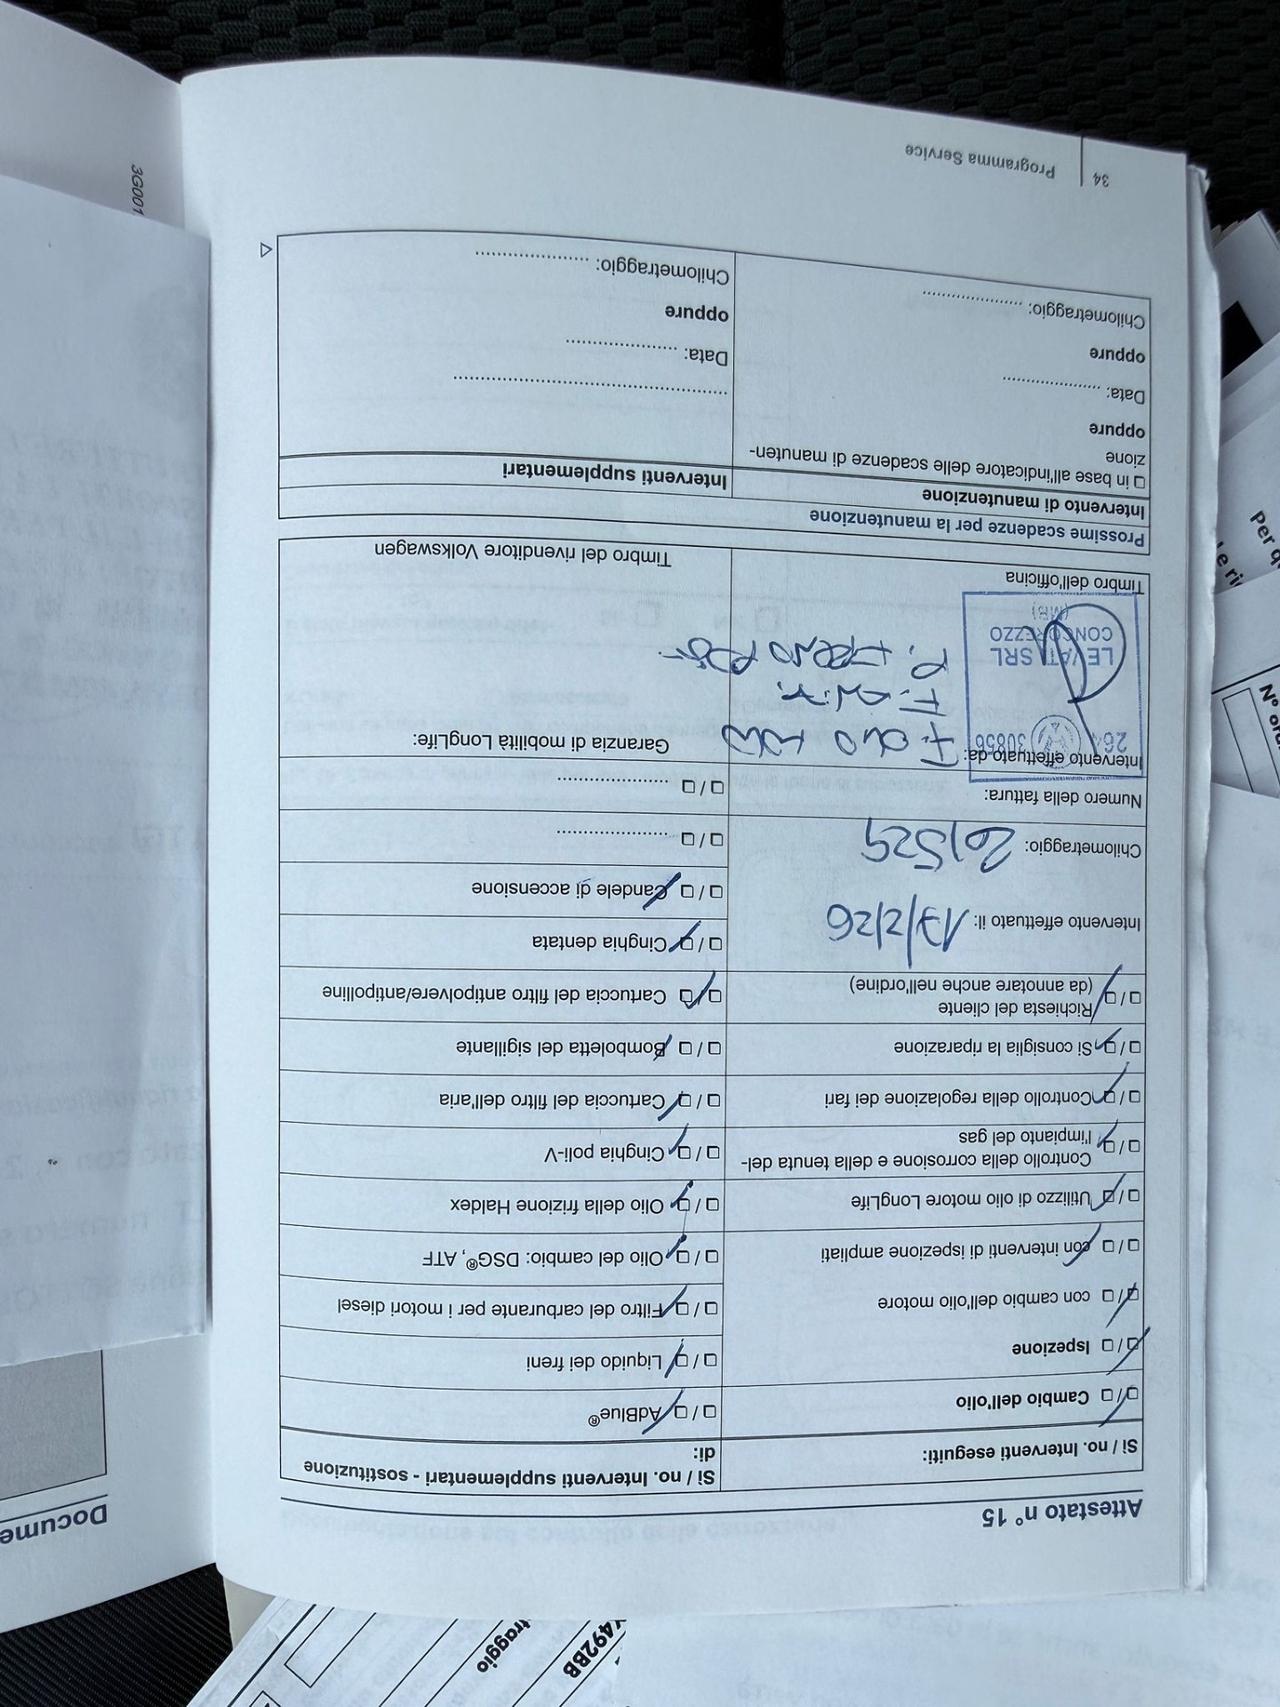 Attestato n° 15
Sì / no. Interventi eseguiti:
❏/❏ Cambio dell'olio
❏/❏ Ispezione
❏/❏ con cambio dell'olio motore
❏/❏ con interventi di ispezione ampliati
❏/❏ Utilizzo di olio motore LongLife
❏/❏ Controllo della corrosione e della tenuta del-
l'impianto del gas
❏/❏ Controllo della regolazione dei fari
❏/❏ Si consiglia la riparazione
❏/❏ Richiesta del cliente
(da annotare anche nell'ordine)
Intervento effettuato il: 17/2/26
Chilometraggio: 201529
Numero della fattura:
Intervento effettuato da:
F. olio
F.
P. FRENO POST
264 30856
LEVATI SRL
CONCOREZZO
(MB)
Timbro dell'officina
Sì / no. Interventi supplementari - sostituzione
di:
❏/❏ AdBlue®
❏/❏ Liquido dei freni
❏/❏ Filtro del carburante per i motori diesel
❏/❏ Olio del cambio: DSG®, ATF
❏/❏ Olio della frizione Haldex
❏/❏ Cinghia poli-V
❏/❏ Cartuccia del filtro dell'aria
❏/❏ Bomboletta del sigillante
❏/❏ Cartuccia del filtro antipolvere/antipolline
❏/❏ Cinghia dentata
❏/❏ Candele di accensione
❏/❏ ....................
❏/❏ ....................
Garanzia di mobilità LongLife:
Timbro del rivenditore Volkswagen
Prossime scadenze per la manutenzione
Intervento di manutenzione
❏ in base all'indicatore delle scadenze di manuten-
zione
oppure
Data: ..................
oppure
Chilometraggio: ..................
Interventi supplementari
..................................................
Data: ....................
oppure
Chilometraggio: ....................
34
Programma Service
3G001
Docume
traggio
492BB
Per q
Le ri
N° or